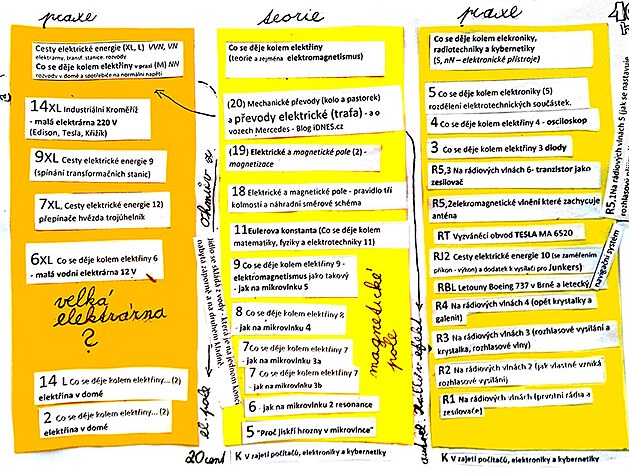 praxe
Cesty elektrické energie (XL, L) VVN, VN
elektrárny, transf. stanice. rozvody
Co se děje kolem elektřiny v praxi (M) NN
rozvody v domě a spotřebiče na normální napětí
14XL Industriální Kroměříž
- malá elektrárna 220 V
(Edison, Tesla, Křižík)
9XL Cesty elektrické energie 9
(spínání transformačních stanic)
7XL Cesty elektrické energie 12)
přepínače hvězda trojúhelník
6XL Co se děje kolem elektřiny 6
- malá vodní elektrárna 12 V
velká
elektrárna
?
14 L Co se děje kolem elektřiny... (2)
elektřina v domě
2 Co se děje kolem elektřiny... (2)
elektřina v domě
teorie
Co se děje kolem elektřiny
(teorie a zejména elektromagnetismu)
(20) Mechanické převody (kolo a pastorek)
a převody elektrické (trafa) - a o
vozech Mercedes - Blog iDNES.cz
(19) Elektrické a magnetické pole (2) -
magnetizace
18 Elektrické a magnetické pole - pravidlo tří
kolmostí a náhradní směrové schéma
11 Eulerova konstanta (Co se děje kolem
matematiky, fyziky a elektrotechniky 11)
9 Co se děje kolem elektřiny 9 -
elektromagnetismus jako takový
- jak na mikrovlnku 5
8 Co se děje kolem elektřiny 8
- jak na mikrovlnku 4
7 Co se děje kolem elektřiny 7
- jak na mikrovlnku 3a
7 Co se děje kolem elektřiny 7
- jak na mikrovlnku 3b
6 - jak na mikrovlnku 2 resonance
5 "Proč jiskří hrozny v mikrovlnce"
20 cent K V zajetí počítačů, elektroniky a kybernetiky
magnetické
pole
el. pole
praxe
Co se děje kolem elekroniky,
radiotechniky a kybernetiky
(S, nN – elektronické přístroje)
5 Co se děje kolem elektroniky (5)
rozdělení elektrotechnických součástek.
4 Co se děje kolem elektřiny 4 - osciloskop
3 Co se děje kolem elektřiny 3 diody
R5,3 Na rádiových vlnách 6- tranzistor jako
zesilovač
R5,2elekromagnetické vlnění které zachycuje
anténa
RT Vyzváněcí obvod TESLA MA 6520
RJ2 Cesty elektrické energie 10 (se zaměřením
příkon - výkon) a dodatek k vysílači pro Junkers)
RBL Letouny Boeing 737 v Brně a letecký
navigační systém
R4 Na rádiových vlnách 4 (opět krystalky a
galenit)
R3 Na rádiových vlnách 3 (rozhlasové vysílání a
krystalka, rozhlasové vlny)
R2 Na rádiových vlnách 2 (jak vlastně vzniká
rozhlasové vysílání)
R1 Na rádiových vlnách (prvotní rádia a
zesilovače)
K V zajetí počítačů, elektroniky a kybernetiky
R5,1Na rádiových vlnách 5 (jak se nastavuje